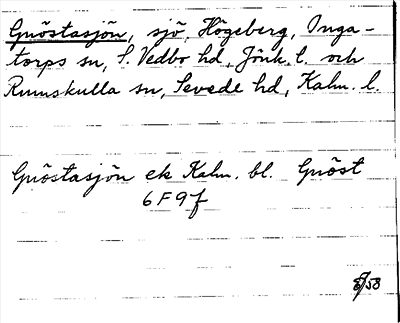 Gnöstasjön, sjö, Högeberg, Inga-
torps sn, S. Vedbo hd, Jönk. l. och
Rumskulla sn, Sevede hd, Kalm. l.
Gnöstasjön ek Kalm. bl. Gnöst
6F9f